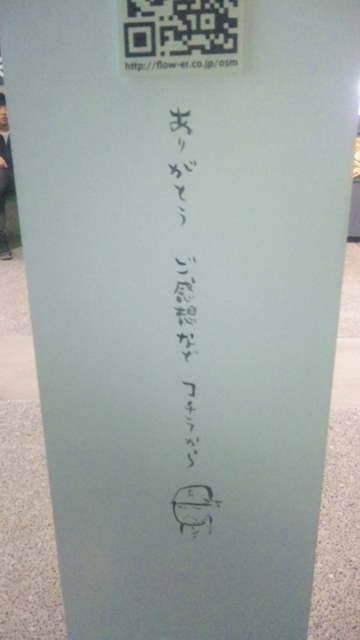 http://flow-er.co.jp/osm
ありがとう ご感想など コチラから